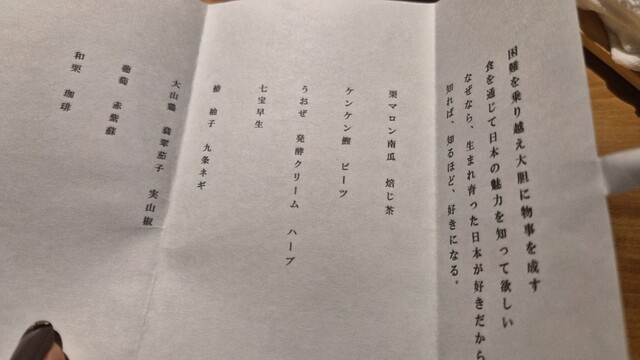 困難を乗り越え大胆に物事を成す
食を通じて日本の魅力を知って欲しい
なぜなら、生まれ育った日本が好きだから
知れば、知るほど、好きになる。
栗マロン南瓜 焙じ茶
ケンケン鰹 ビーツ
うおぜ 発酵クリーム ハーブ
七宝早生
鰆 柚子 九条ネギ
大山鶏 翡翠茄子 実山椒
葡萄 赤紫蘇
和栗 珈琲